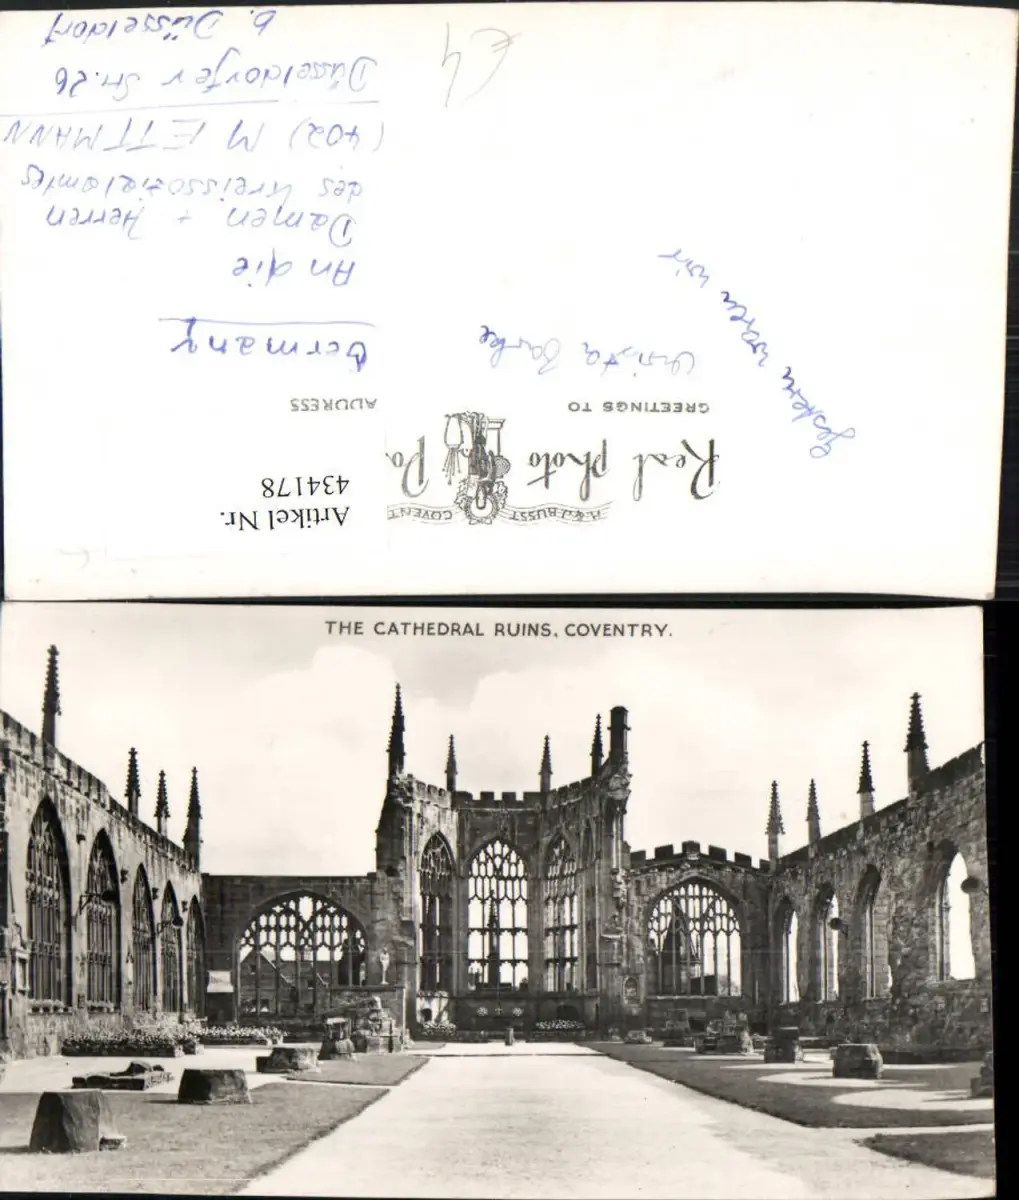 Artikel Nr.
434178
H. & J. BUSST COVENT
Real photo Po
GREETINGS TO
ADDRESS
Christa
Gestern waren wir
Germany
An die
Damen + Herren
des Kreissozialamtes
(402) METTMANN
Düsseldorfer Str. 26
b. Düsseldorf
£4
THE CATHEDRAL RUINS, COVENTRY.